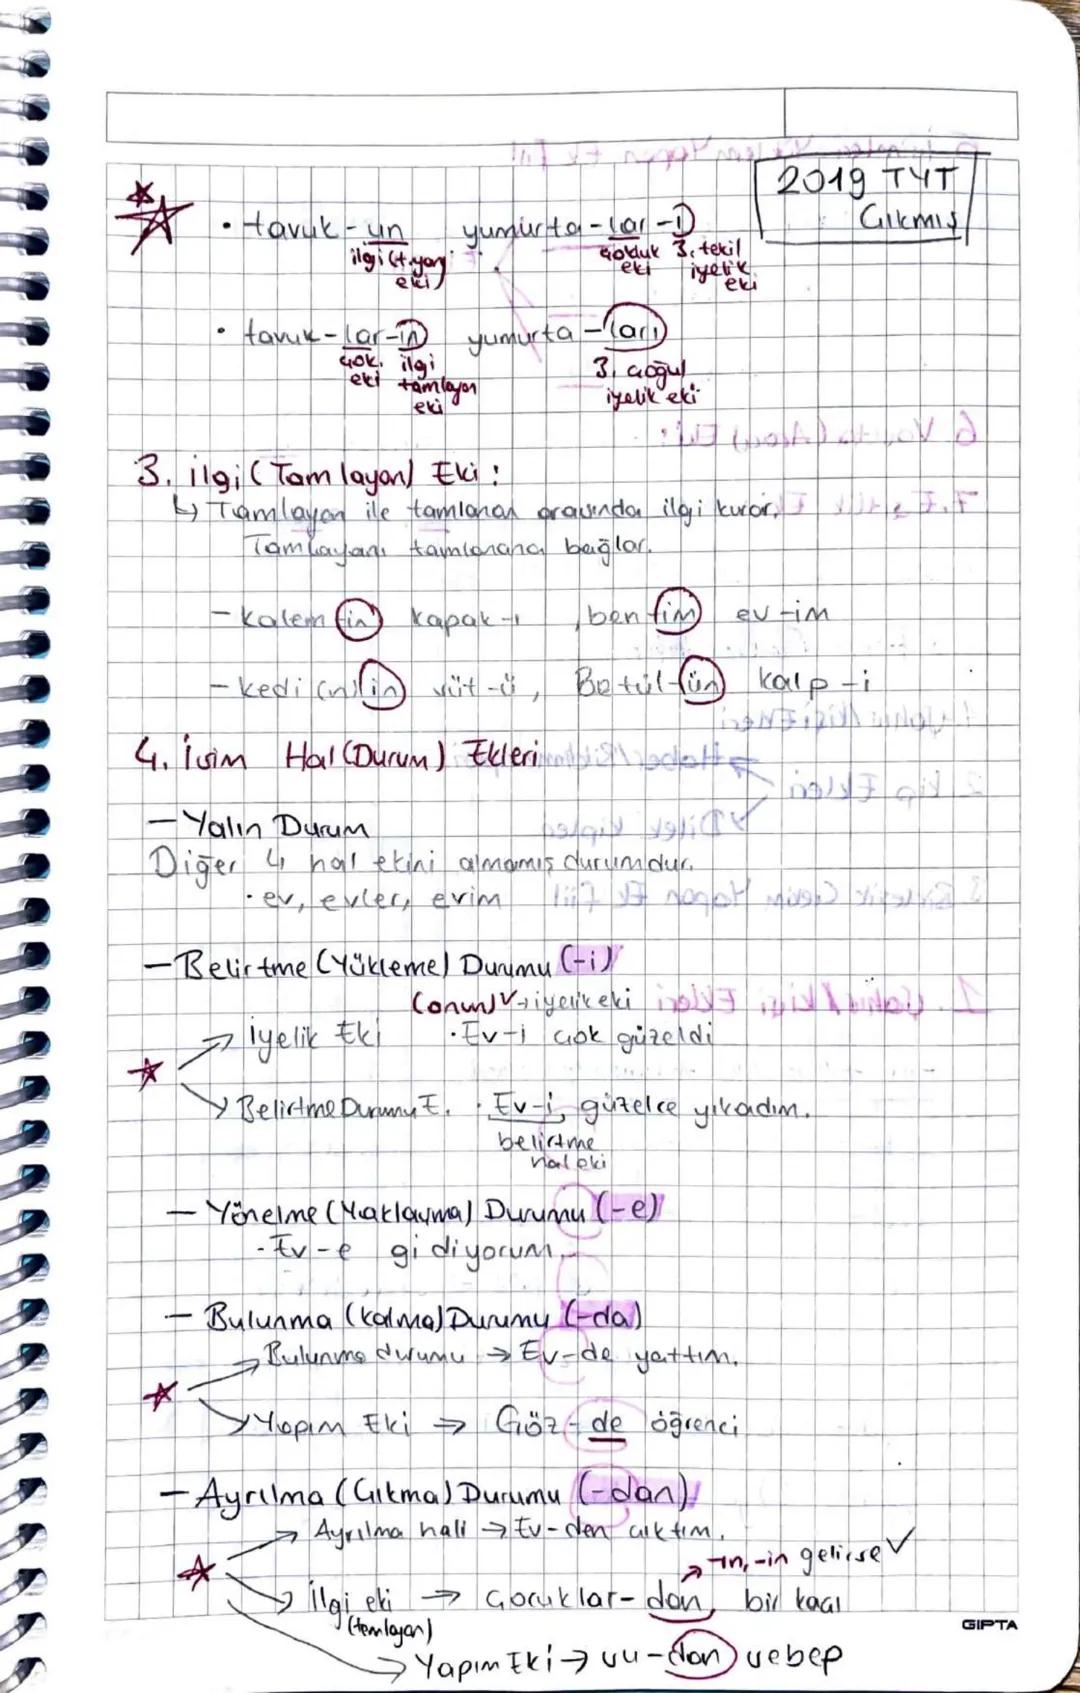 2019 TYT
Çıkmış
• tavuk-un yumurta-lar-ı
ilgi (t.yan eki) çokluk eki 3. tekil iyelik eki
• tavuk-lar-ın yumurta-ları
çok. eki ilgi tamlayan eki 3. çoğul iyelik eki
3. İlgi (Tamlayan) Eki:
↳ Tamlayan ile tamlanan arasında ilgi kurar.
Tamlayanı tamlanana bağlar.
- kalem-in kapak-ı, ben-im ev-im
- kedi (n)-in süt-ü, Betül-ün kalp-i
4. İsim Hal (Durum) Ekleri
- Yalın Durum
Diğer 4 hal ekini almamış durumdur.
• ev, evler, evim
- Belirtme (Yükleme) Durumu (-i)
(onun) ✓→ iyelik eki
→ İyelik Eki • Ev-i çok güzeldi
→ Belirtme Durumu E. • Ev-i, güzelce yıkadım.
belirtme
hal eki
- Yönelme (Yaklaşma) Durumu (-e)
- Ev-e gidiyorum.
- Bulunma (Kalma) Durumu (-da)
→ Bulunma durumu → Ev-de yattım.
→ Yapım Eki ⇒ Göz-de öğrenci
- Ayrılma (Çıkma) Durumu (-dan)
→ Ayrılma hali → Ev-den çıktım.
→ -ın, -in gelirse ✓
→ İlgi eki → Çocuklar-dan bir kaçı
(tamlayan)
→ Yapım Eki → sı-dan sebep
GIPTA